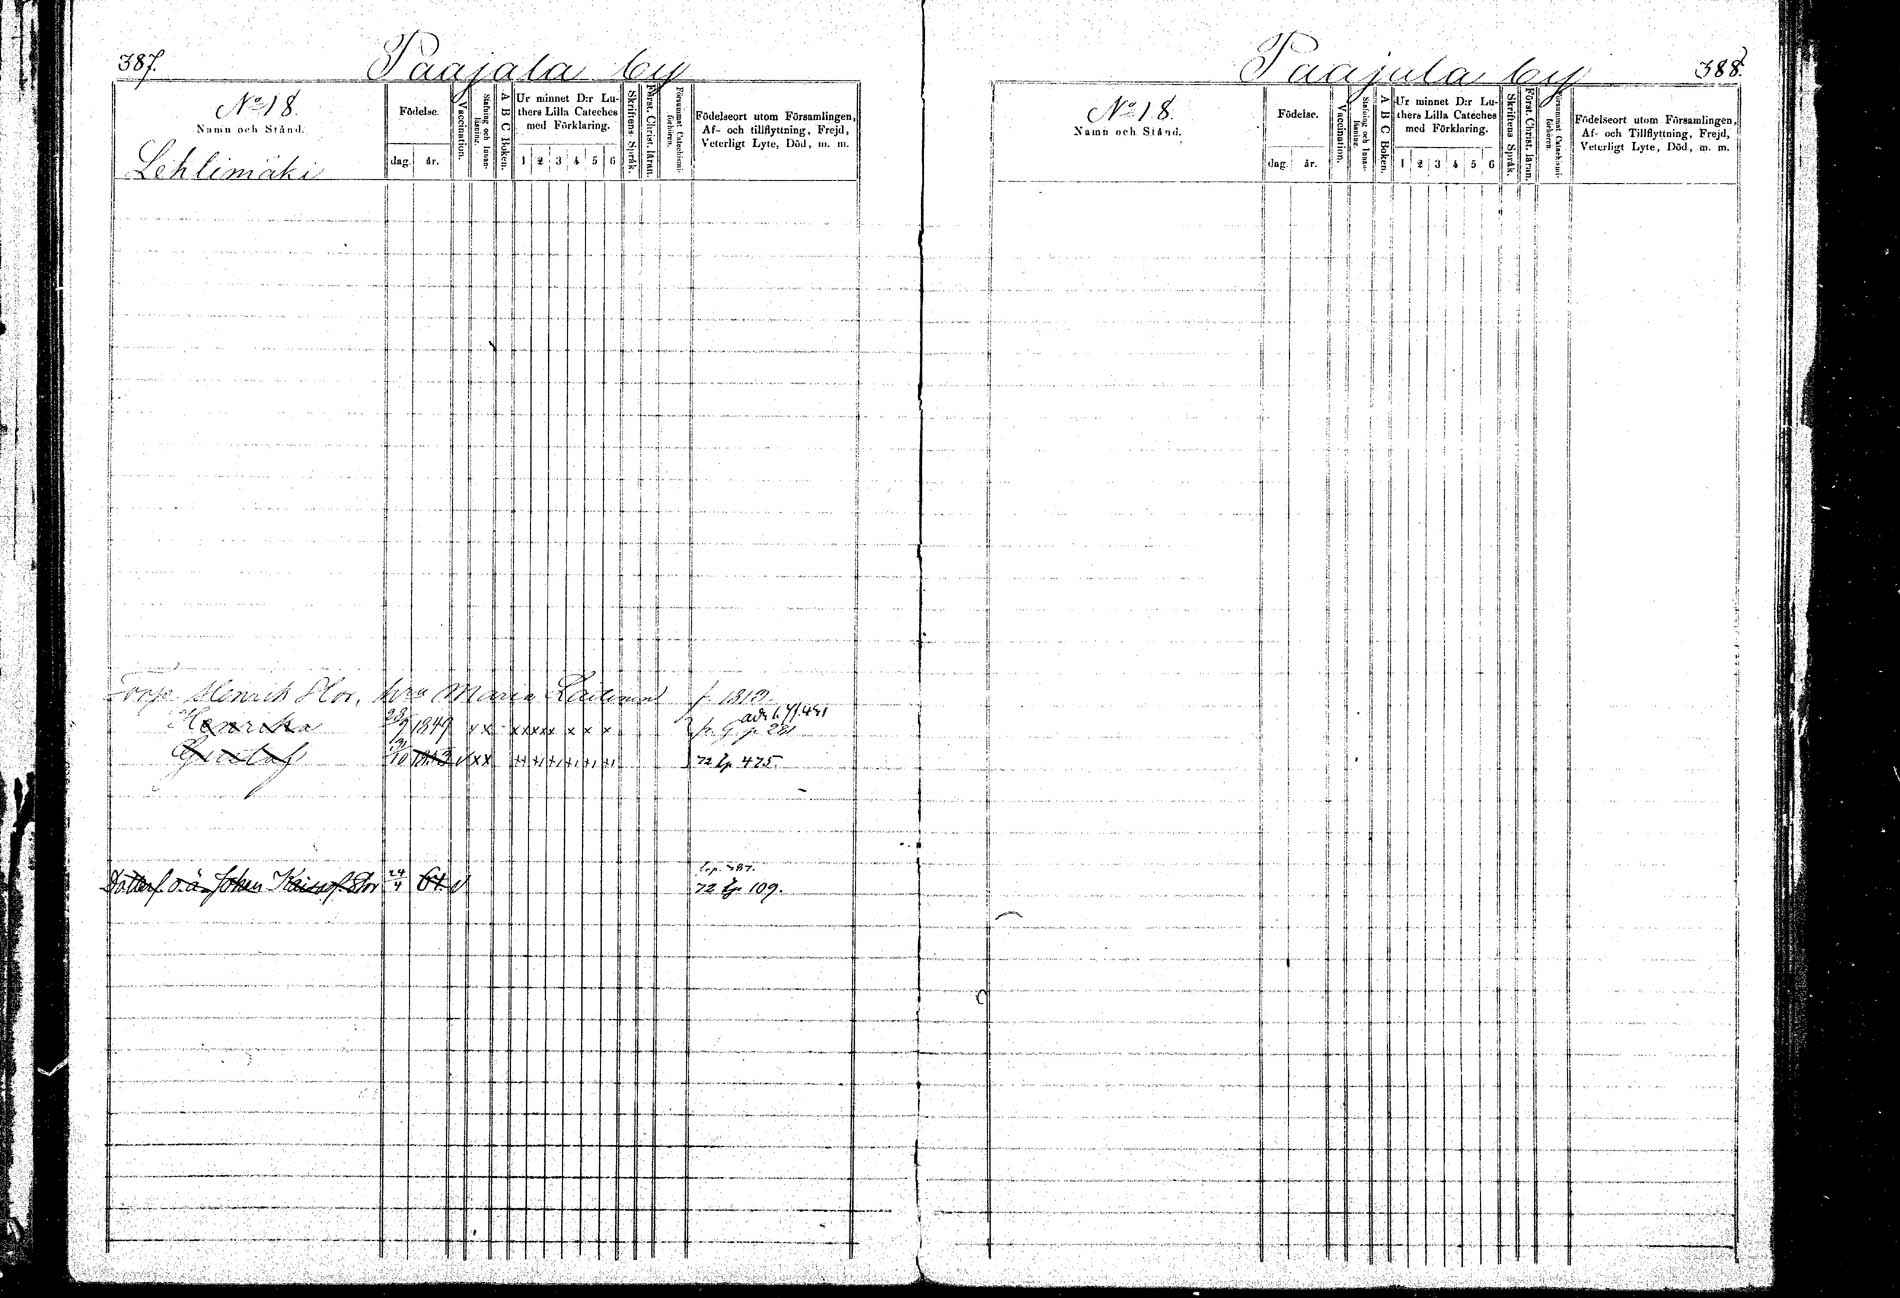 387.
Paajala by
No 18.
Namn och Stånd.
Lehlimäki
Födelse.
dag.
år.
Vaccination.
Stafning och Innanläsning.
A B C Boken.
Ur minnet D:r Lu-
thers Lilla Cateches
med Förklaring.
1 2 3 4 5 6
Skriftens Språk.
Först. Christ. läran.
Försummat Catechismi-
förhören.
Födelseort utom Församlingen,
Af- och tillflyttning, Frejd,
Veterligt Lyte, Död, m. m.
Torp. Henrik Hor. hru Maria
Henrika 1849 x x x x x x x x x x
Gustaf 72 lp 475.
24/4 61. v
72 lp 109.
388.
Paajala by
No 18.
Namn och Stånd.
Födelse.
dag.
år.
Vaccination.
Stafning och Innanläsning.
A B C Boken.
Ur minnet D:r Lu-
thers Lilla Cateches
med Förklaring.
1 2 3 4 5 6
Skriftens Språk.
Först. Christ. läran.
Försummat Catechismi-
förhören.
Födelseort utom Församlingen,
Af- och Tillflyttning, Frejd,
Veterligt Lyte, Död, m. m.